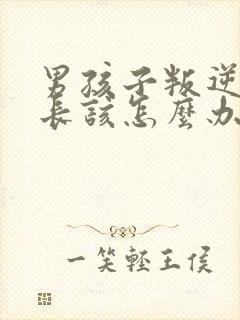 男孩子叛逆
長該怎麼办
一笑輕王侯